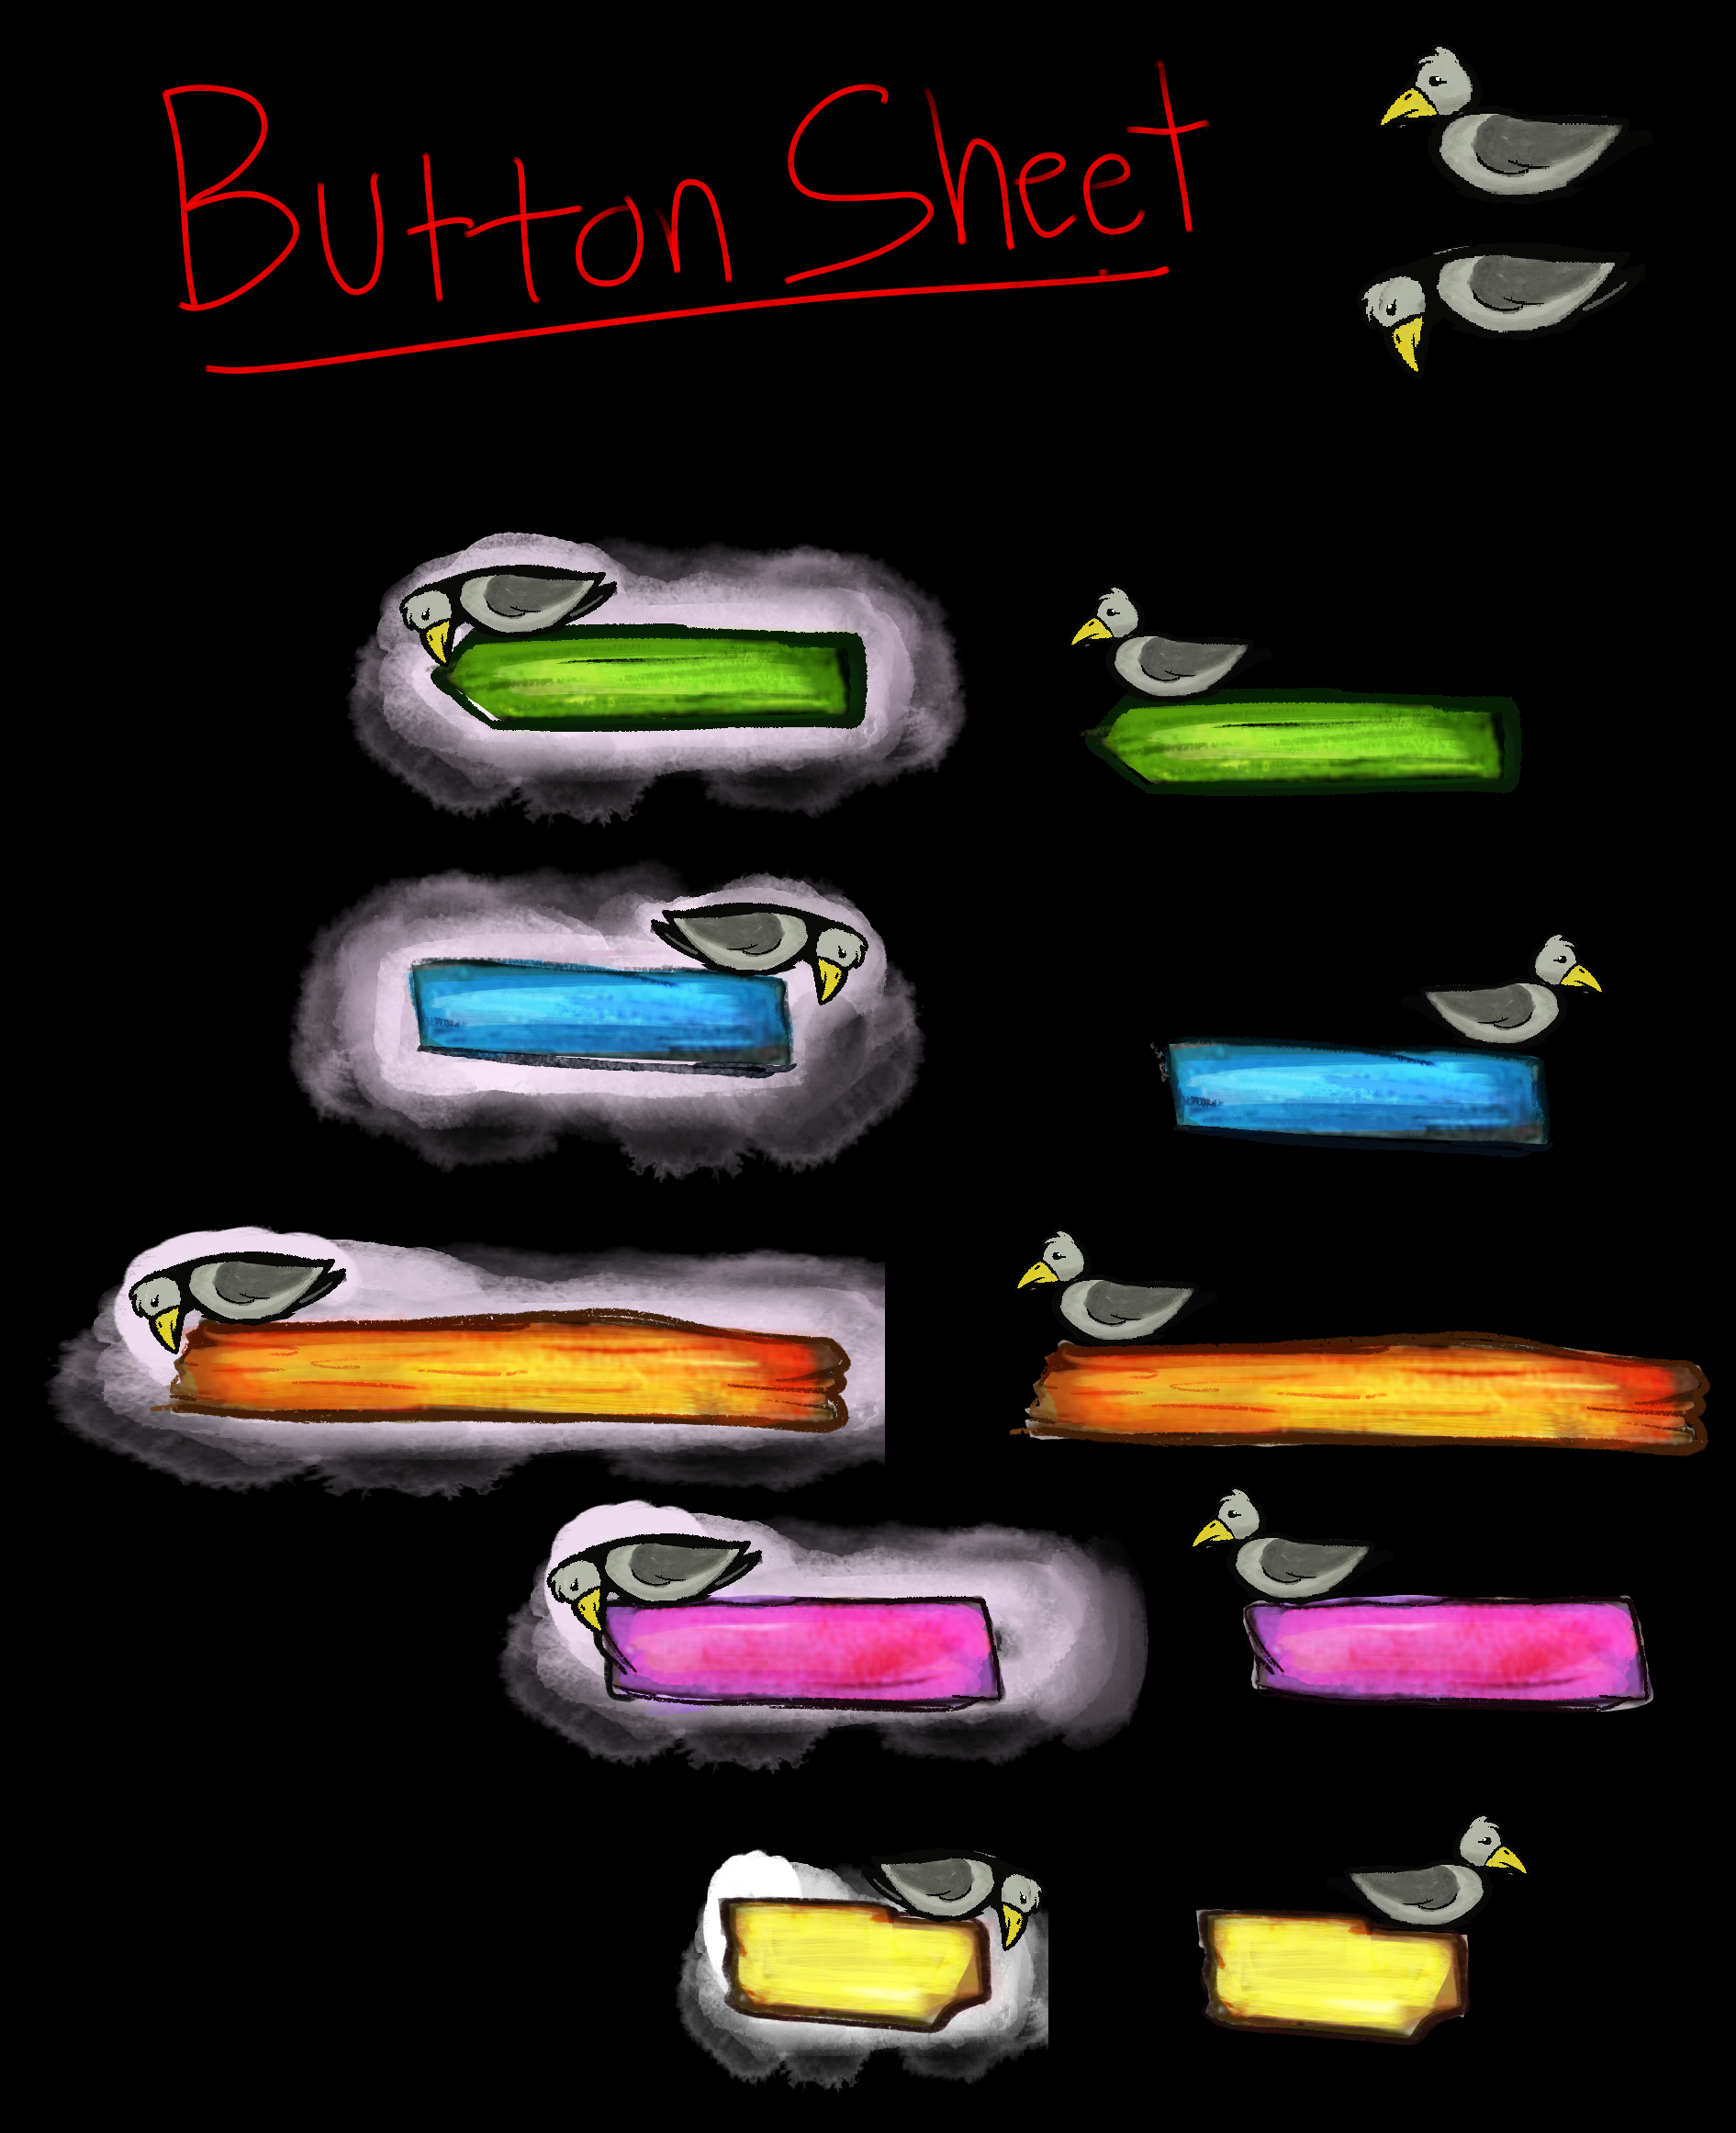 Button Sheet